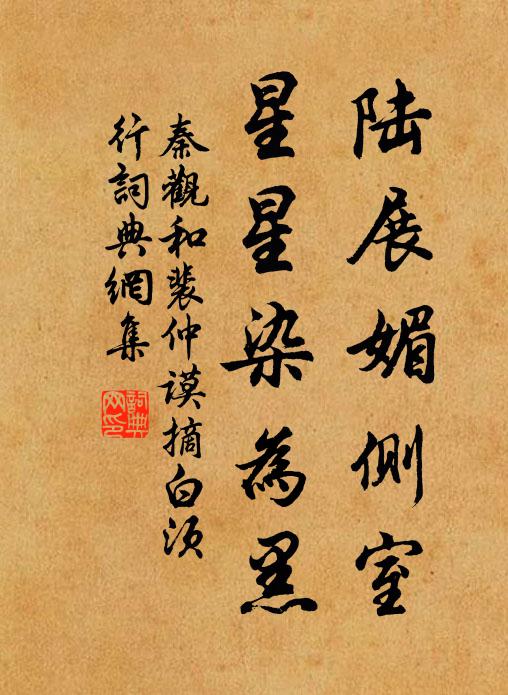 陆展媚侧室
星星染為黑
秦觀和裴仲謨摘白須
行詞典網集
詞典
网印